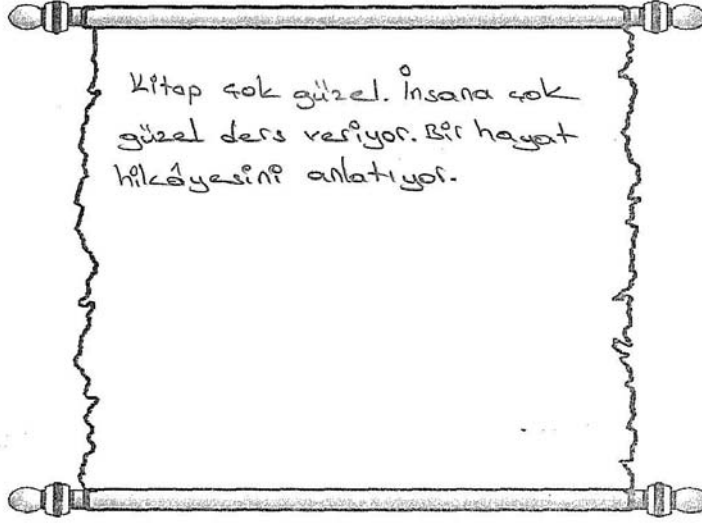 Kitap çok güzel. İnsana çok
güzel ders veriyor. Bir hayat
hikâyesini anlatıyor.